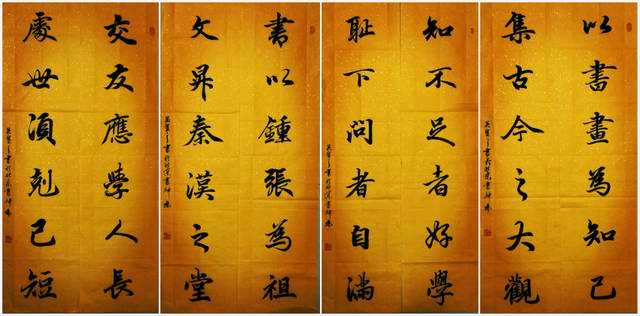 交友應學人長
處世須剋己短
書以鍾張為祖
文昇秦漢之堂
知不足者好學
耻下問者自滿
以書畫為知己
集古今之大觀